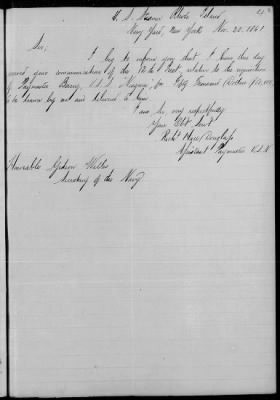 U. S. Steamer Rhode Island
New York, New York Nov. 22. 1861
Sir,
I beg to inform you that I have this day
received your communication of the Inst. relative to the requisition
of Paymaster U.S.S. for Fifty Thousand Dollars
to be drawn by me and delivered to him.
I am Sir, very respectfully
Your Obt. Servt.
Assistant Paymaster U.S.N.
Honorable Gideon Welles
Secretary of the Navy